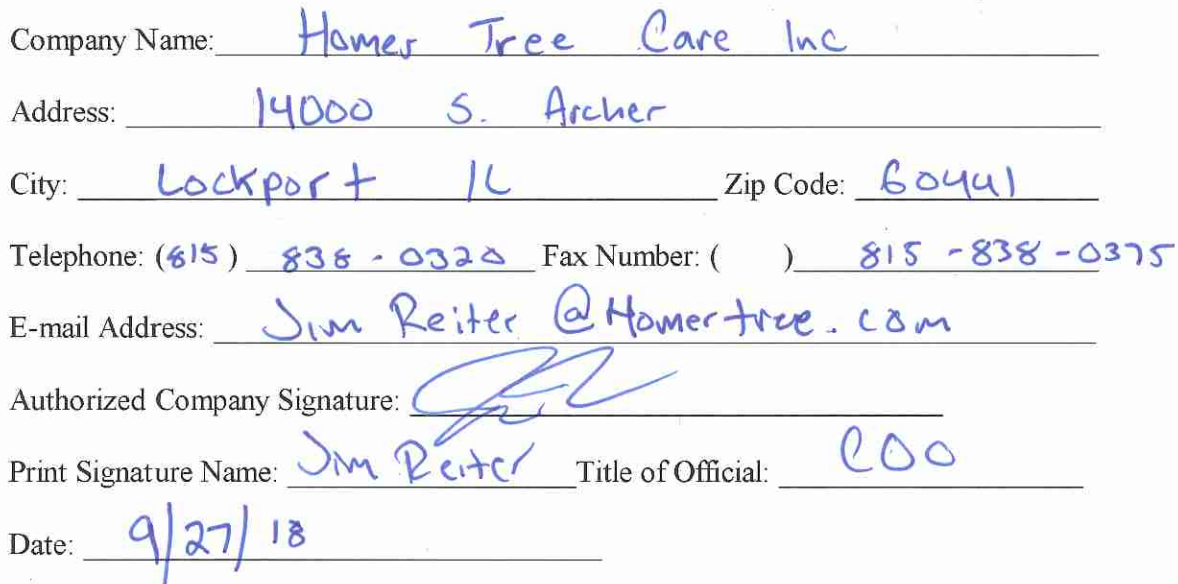 Company Name: Homer Tree Care Inc
Address: 14000 S. Archer
City: Lockport IL Zip Code: 60441
Telephone: (815) 838-0320 Fax Number: ( ) 815-838-0375
E-mail Address: Jim Reiter @Homertree.com
Authorized Company Signature:
Print Signature Name: Jim Reiter Title of Official: COO
Date: 9/27/18